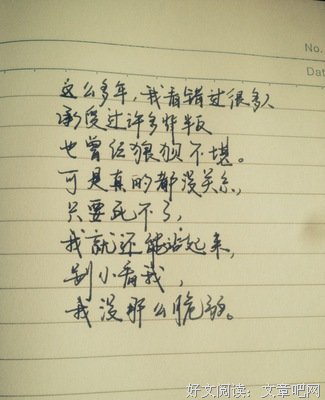 No.
Dat
这么多年，我看错过很多人
承受过许多背叛
也曾经狼狈不堪。
可是真的都没关系，
只要死不了，
我就还能站起来，
别小看我，
我没那么脆弱。
好文阅读：文章吧网